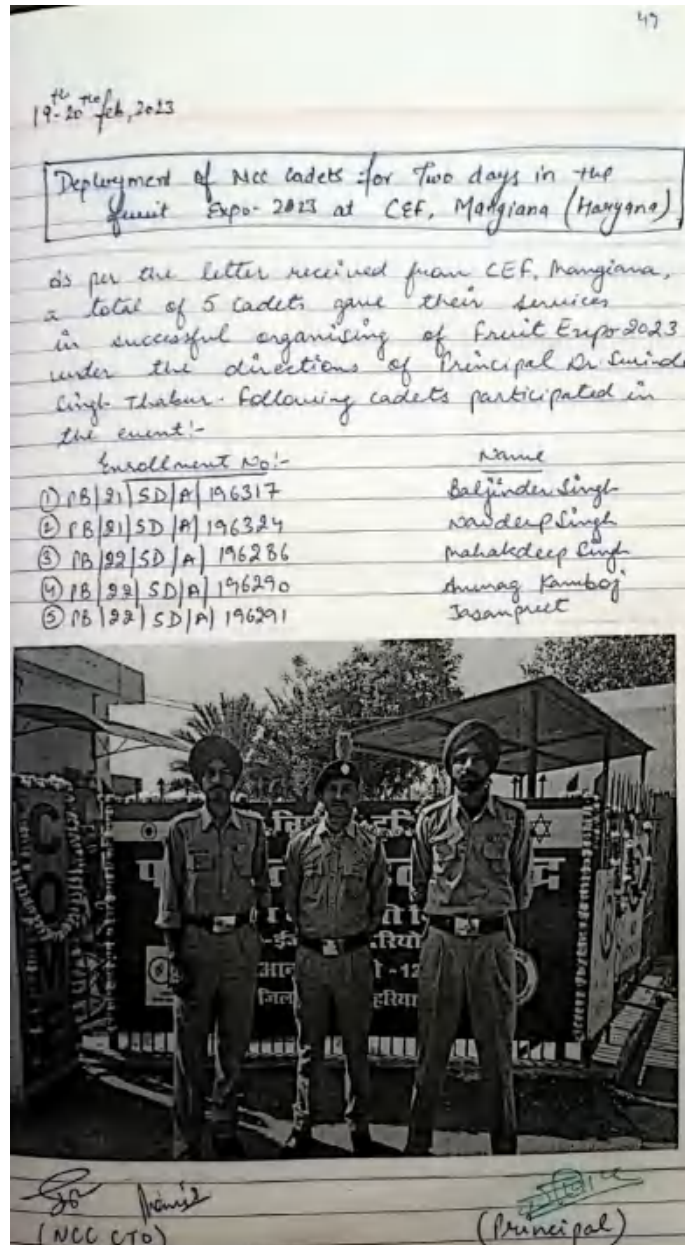 49
19th-20th feb, 2023
Deployment of NCC Cadets for Two days in the
fruit Expo-2023 at CEF, Mangiana (Haryana)
As per the letter received from CEF, Mangiana,
a total of 5 Cadets gave their services
in successful organising of Fruit Expo 2023
under the directions of Principal Dr.
Singh Thakur. Following cadets participated in
the event:-
Enrollment No:- Name
① PB|21|SD|A|196317 Baljinder Singh
② PB|21|SD|A|196324 Navdeep Singh
③ PB|22|SD|A|196286 Mahakdeep Singh
④ PB|22|SD|A|196290 Anurag Kamboj
⑤ PB|22|SD|A|196291 Jasanpreet
COME
(NCC CTO) (Principal)